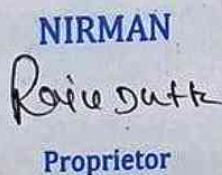 NIRMAN
Dutt
Proprietor